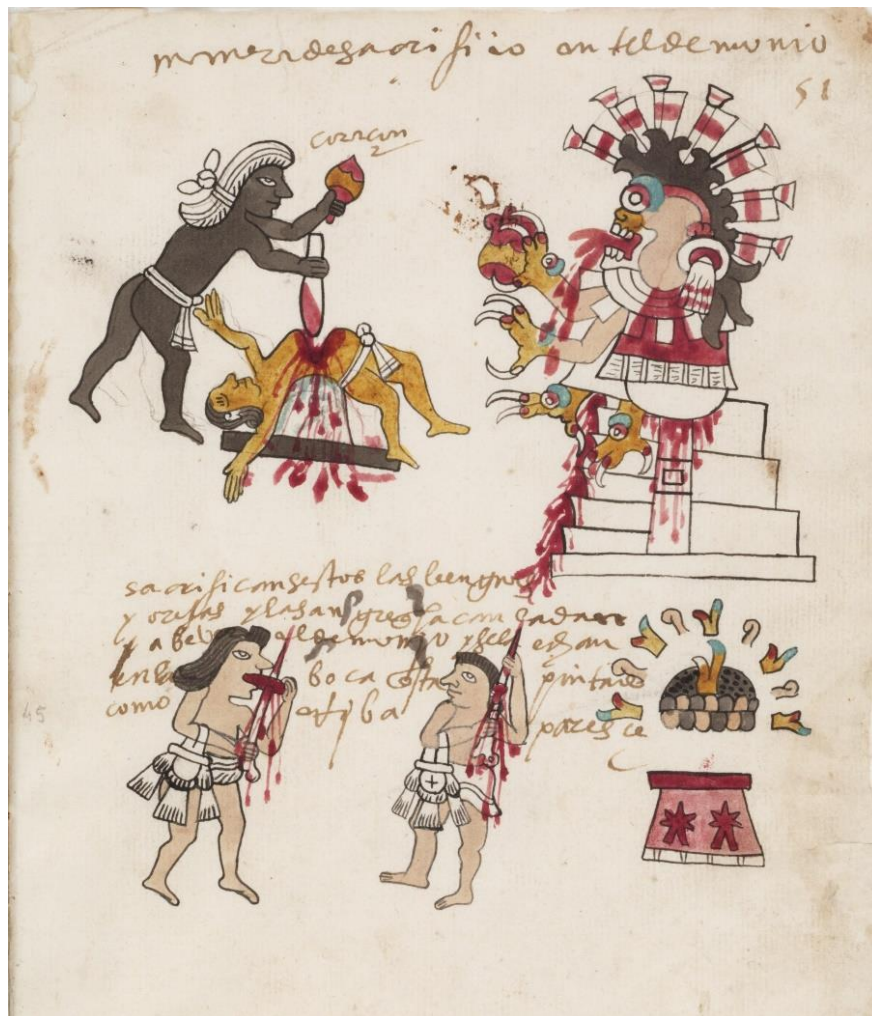 manera de sacrifiçio antel demonio
51
corazon
sacrificanse estos las lenguas
y orejas y la sangre sacan
al demonio y se la echan
en la boca esta pintado
como arriba paresce
45